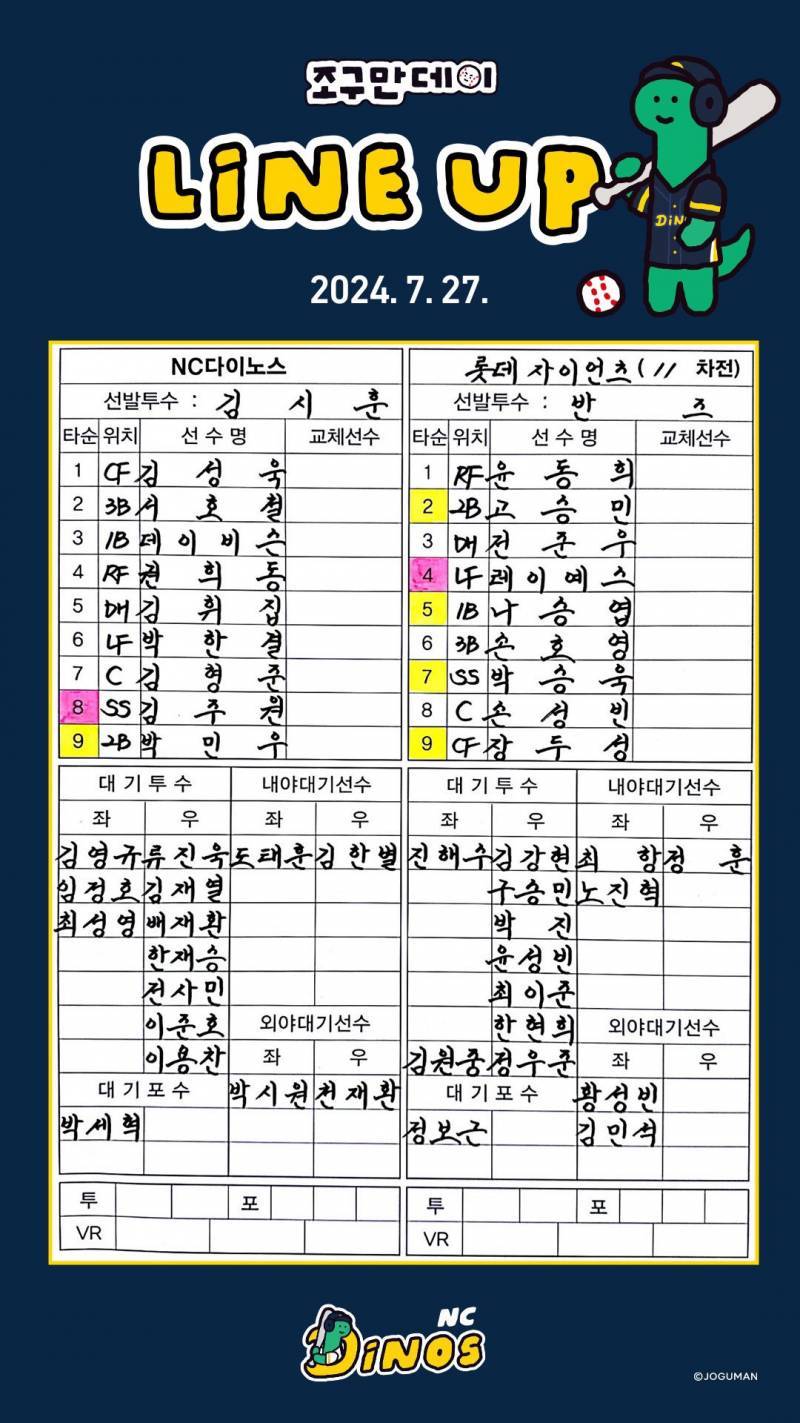 조구만데이
LiNE UP
DiN
2024. 7. 27.
NC다이노스
선발투수 : 김 시 훈
타순 위치 선 수 명 교체선수
1 CF 김 성 욱
2 3B 서 호 철
3 1B 데 이 비 슨
4 RF 권 희 동
5 DH 김 휘 집
6 LF 박 한 결
7 C 김 형 준
8 SS 김 주 원
9 2B 박 민 우
롯데 자이언츠 ( 11 차전)
선발투수 : 반 즈
타순 위치 선 수 명 교체선수
1 RF 윤 동 희
2 2B 고 승 민
3 DH 전 준 우
4 LF 레 이 예 스
5 1B 나 승 엽
6 3B 손 호 영
7 SS 박 승 욱
8 C 손 성 빈
9 CF 장 두 성
대 기 투 수 내야대기선수
좌 우 좌 우
김영규 류진욱 도태훈 김한별
임정호 김재열
최성영 배재환
한재승
전사민
이준호 외야대기선수
이용찬 좌 우
대 기 포 수 박시원 천재환
박세혁
투 포
VR
대 기 투 수 내야대기선수
좌 우 좌 우
진해수 김강현 최 항 정 훈
구승민 노진혁
박 진
윤성빈
최이준
한현희 외야대기선수
김원중 정우준 좌 우
대 기 포 수 황성빈
정보근 김민석
투 포
VR
NC
DiNOS
©JOGUMAN